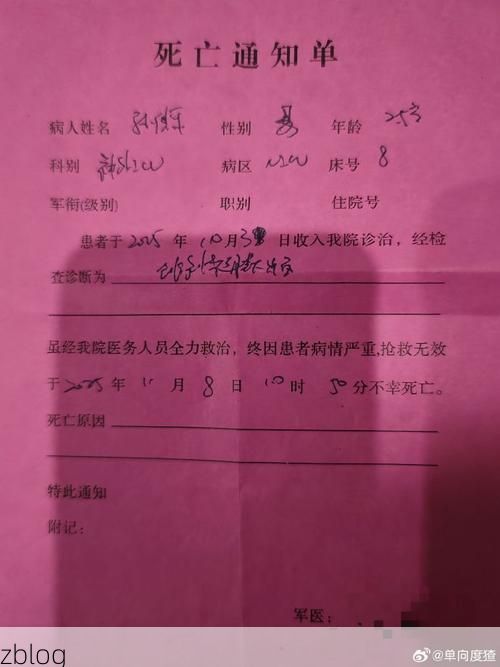 死亡通知单
病人姓名 性别 男 年龄 25岁
科别 神外ICU 病区 NICU 床号 8
军衔(级别) 职别 住院号
患者于2025年10月3 日收入我院诊治，经检
查诊断为
虽经我院医务人员全力救治，终因患者病情严重,抢救无效
于2025年11月8日10时50分不幸死亡。
死亡原因
特此通知
附记：
军医：
zblog
@单向度猹